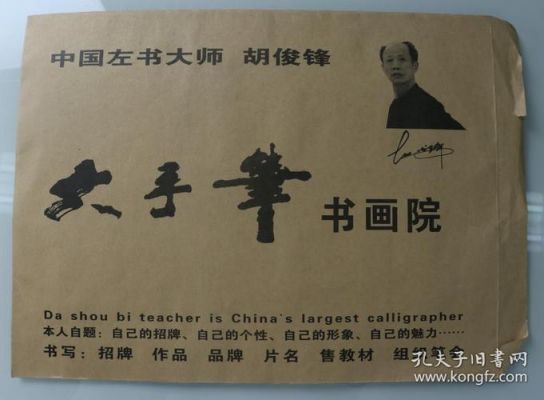 中国左书大师 胡俊锋
大手筆 书画院
Da shou bi teacher is China's largest calligrapher
本人自题：自己的招牌、自己的个性、自己的形象、自己的魅力……
书写：招牌 作品 品牌 片名 售教材 组织笔会
孔夫子旧书网
www.kongfz.com